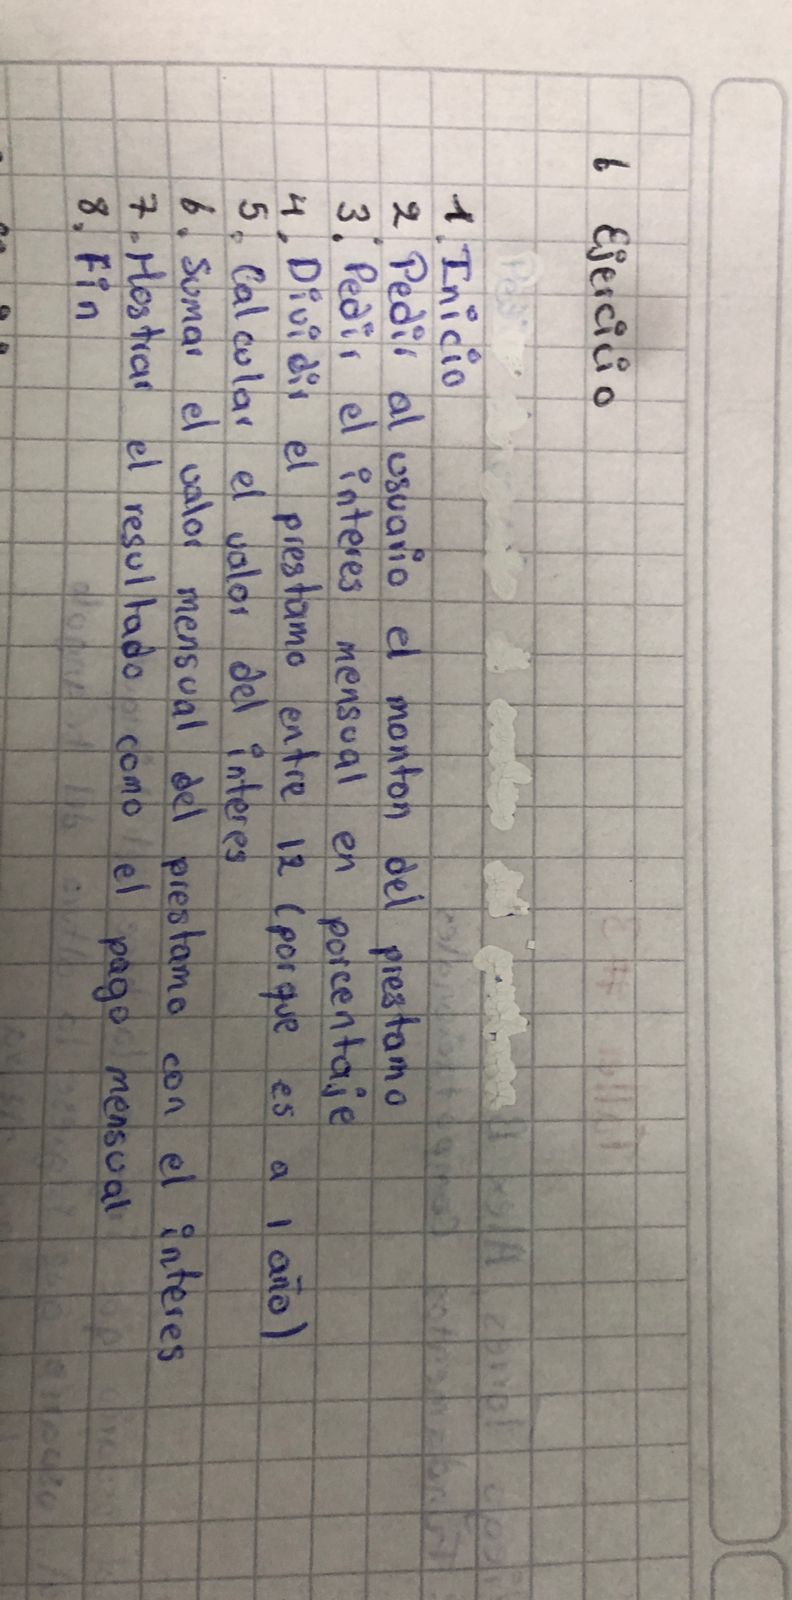 6 Ejercicio
1. Inicio
2 Pedir al usuario el monton del prestamo
3. Pedir el interes mensual en porcentaje
4. Dividir el prestamo entre 12 (porque es a 1 año)
5. Calcular el valor del interes
6. Sumar el valor mensual del prestamo con el interes
7. Mostrar el resultado como el pago mensual
8. Fin